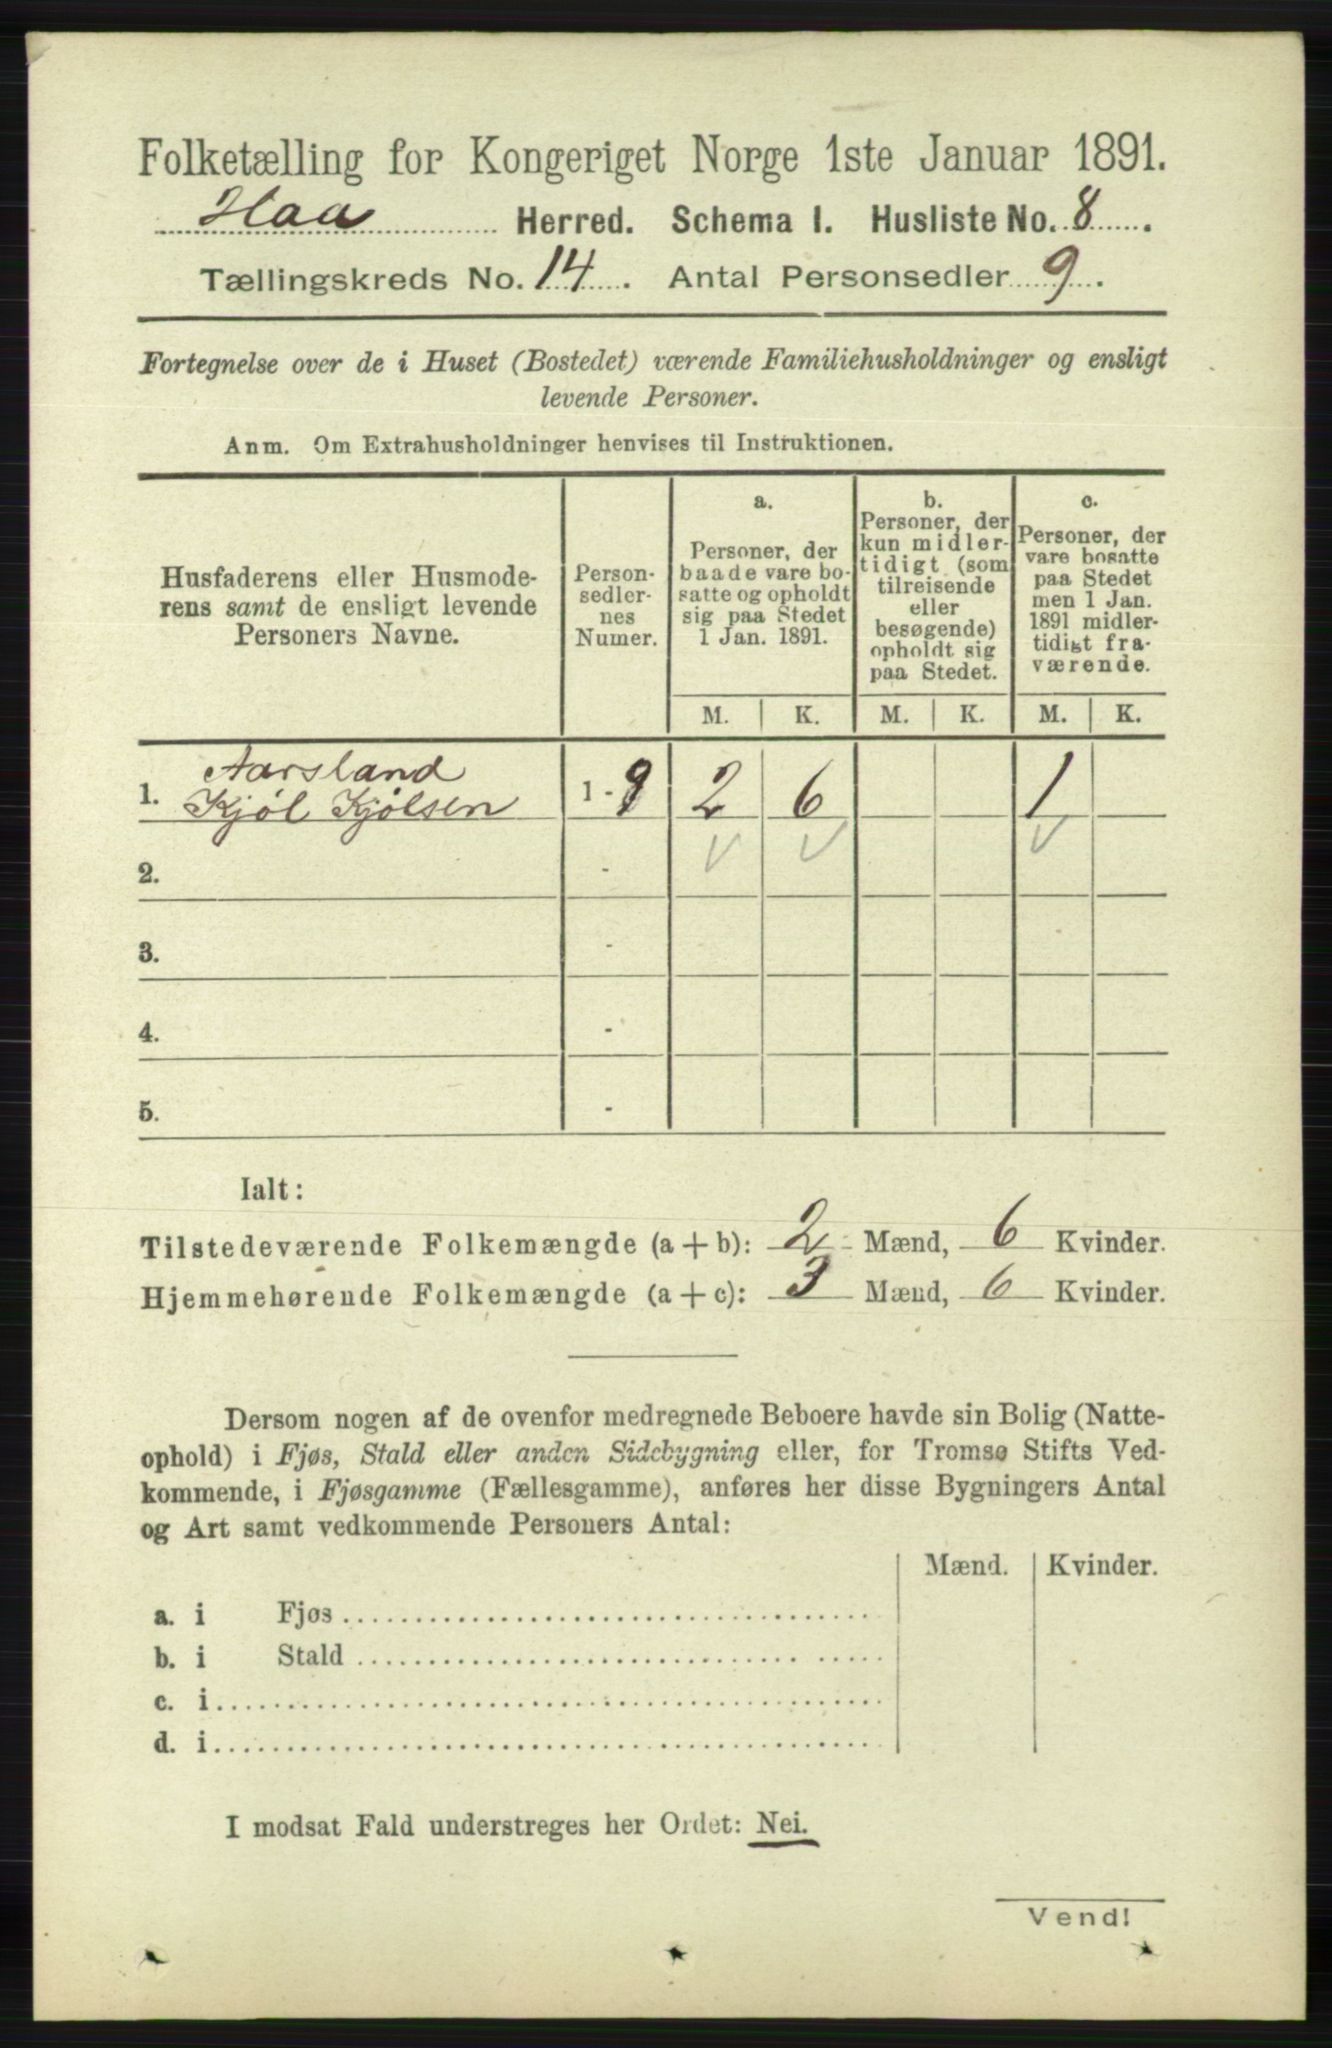 Folketælling for Kongeriget Norge 1ste Januar 1891.
Haa Herred. Schema I. Husliste No. 8.
Tællingskreds No. 14. Antal Personsedler 9.
Fortegnelse over de i Huset (Bostedet) værende Familiehusholdninger og ensligt
levende Personer.
Anm. Om Extrahusholdninger henvises til Instruktionen.
Husfaderens eller Husmode-
rens samt de ensligt levende
Personers Navne.
Person-
sedler-
nes
Numer.
a.
Personer, der
baade vare bo-
satte og opholdt
sig paa Stedet
1 Jan. 1891.
b.
Personer, der
kun midler-
tidigt (som
tilreisende
eller
besøgende)
opholdt sig
paa Stedet.
c.
Personer, der
vare bosatte
paa Stedet
men 1 Jan.
1891 midler-
tidigt fra-
værende.
M. K. M. K. M. K.
Aarsland
1. Kjøl Kjølsen 1 - 9 2 6 1
2. -
3. -
4. -
5. -
Ialt:
Tilstedeværende Folkemængde (a + b): 2 Mænd, 6 Kvinder.
Hjemmehørende Folkemængde (a + c): 3 Mænd, 6 Kvinder.
Dersom nogen af de ovenfor medregnede Beboere havde sin Bolig (Natte-
ophold) i Fjøs, Stald eller anden Sidebygning eller, for Tromsø Stifts Ved-
kommende, i Fjøsgamme (Fællesgamme), anføres her disse Bygningers Antal
og Art samt vedkommende Personers Antal:
Mænd. Kvinder.
a. i Fjøs
b. i Stald
c. i
d. i
I modsat Fald understreges her Ordet: Nei.
Vend!